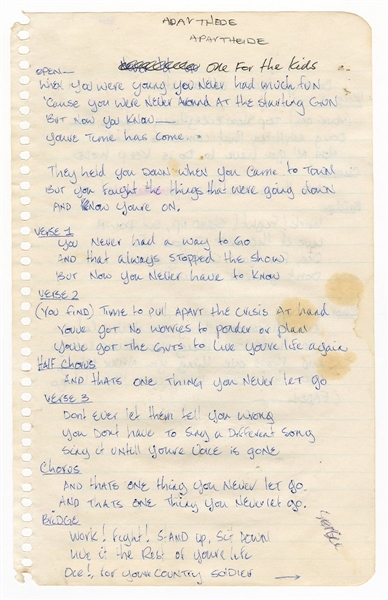 ADARTHEDE
APARTHEIDE
One For the Kids
OPEN—
When you were young you never had much fun
'Cause you were never around at the starting gun
But now you know—
Youre time has come.
They held you down when you came to town
But you fought the things that were going down
And now youre on.
VERSE 1
You never had a way to go
And that always stopped the show
But now you never have to know
VERSE 2
(You find) time to pull apart the crisis at hand
Youve got no worries to ponder or plan
Youve got the guts to live youre life again
Half Chorus
And thats one thing you never let go
VERSE 3
Dont ever let them tell you wrong
You dont have to sing a different song
Sing it until youre voice is gone
Chorus
And thats one thing you never let go.
And thats one thing you never let go.
Bridge
Work! Fight! Stand up, Sit Down
Live it the rest of youre life
Die!, for your country soldier →